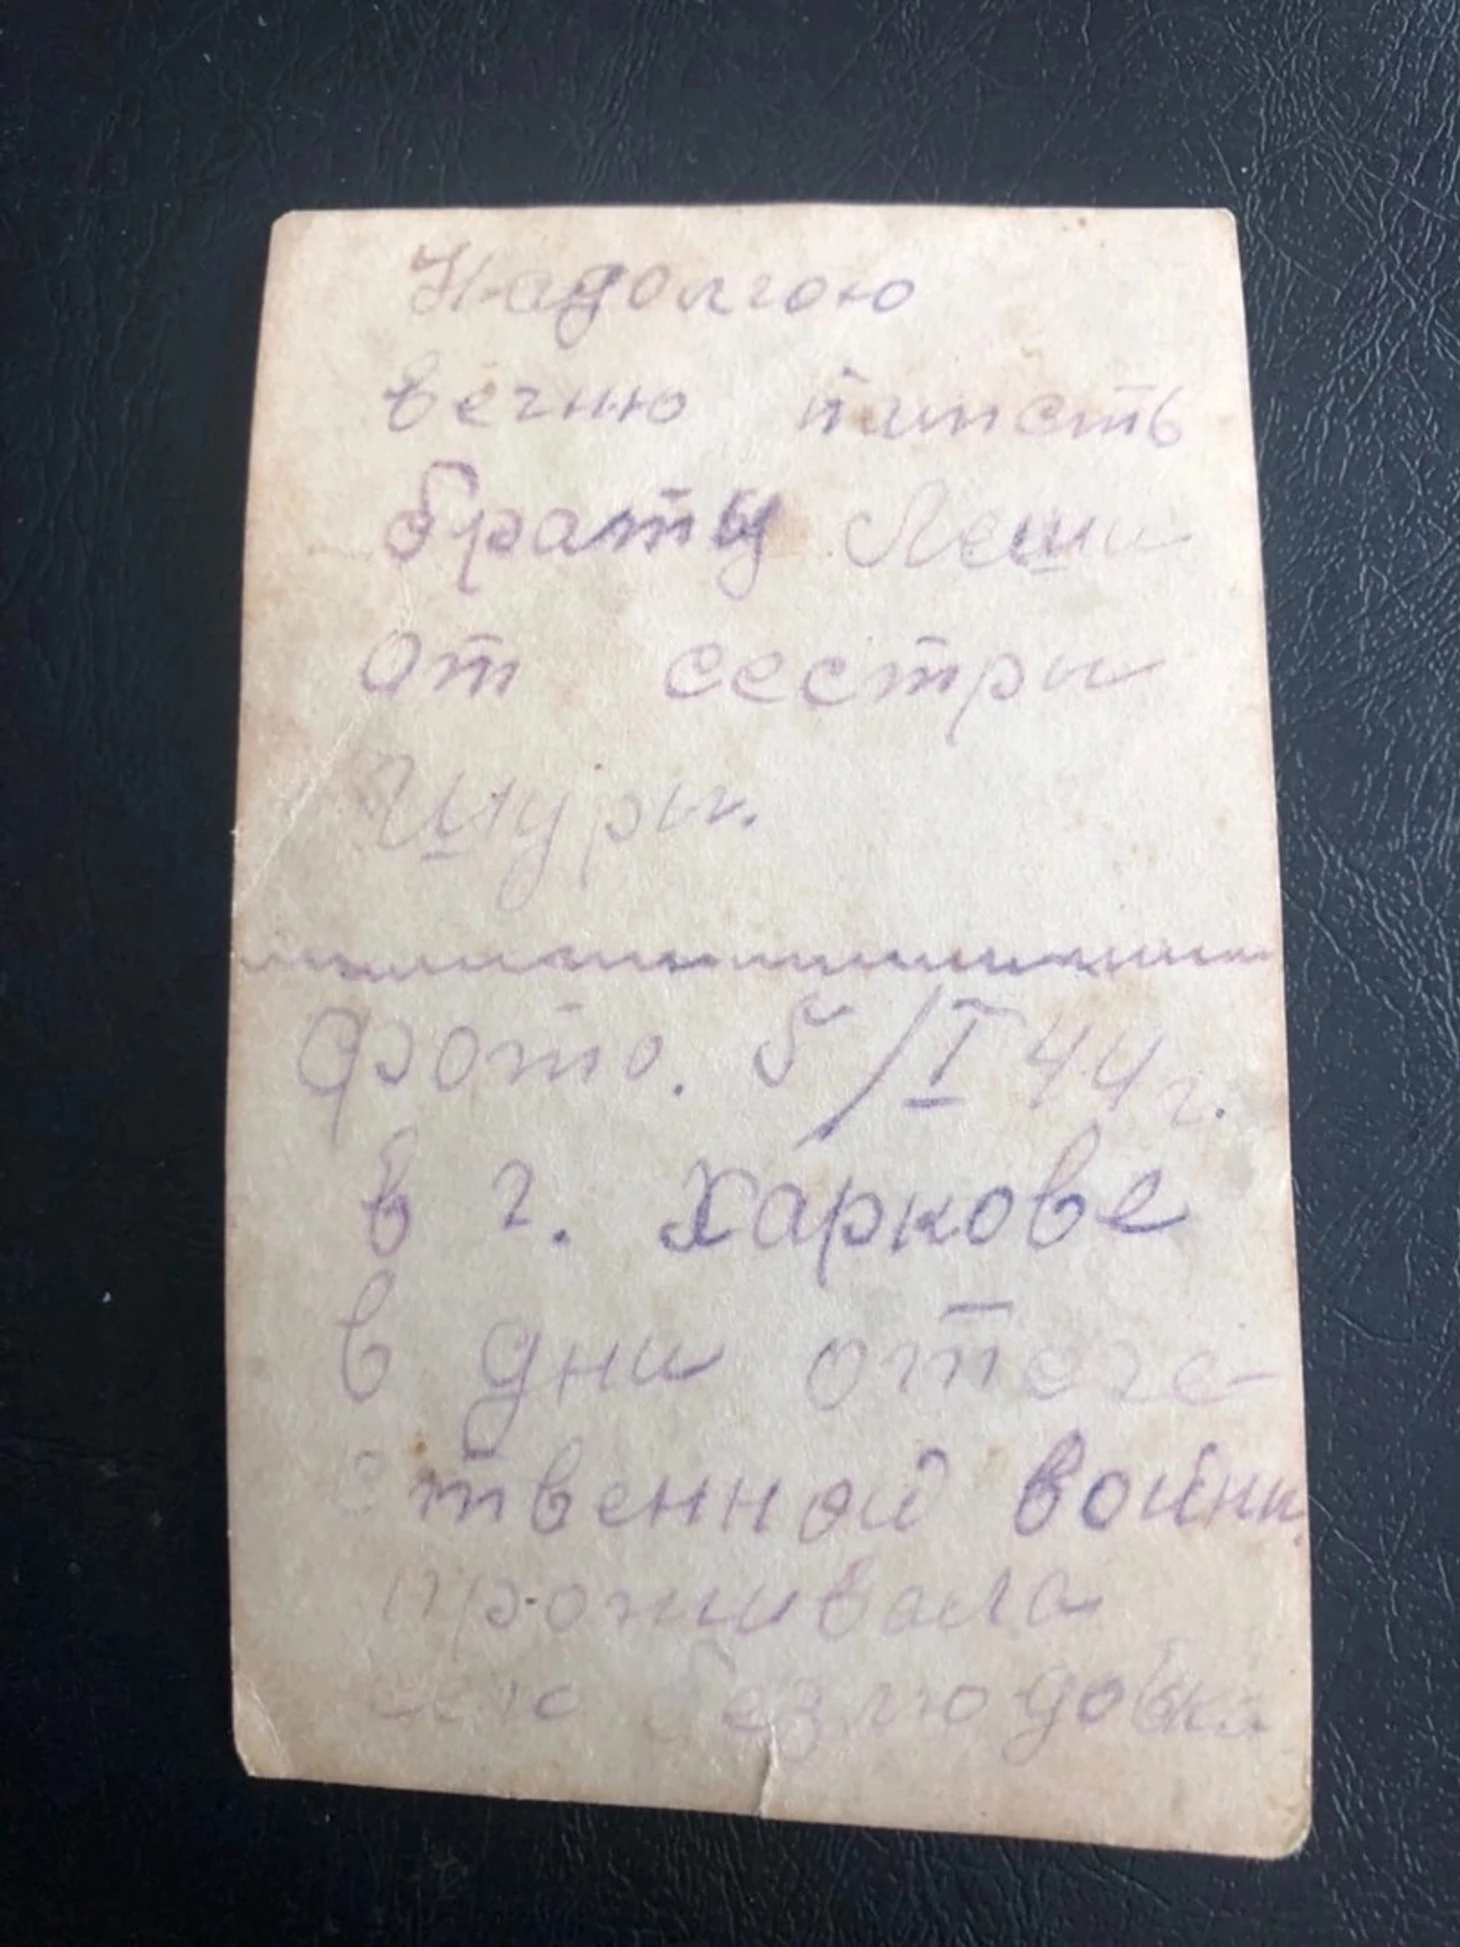 Надолгою
вечнюю
брату Леши
от сестры
Шуры.
Фото. 5/I 44 г.
в г. Харкове
в дни отече-
ственной войны
проживала
село Безлюдовка